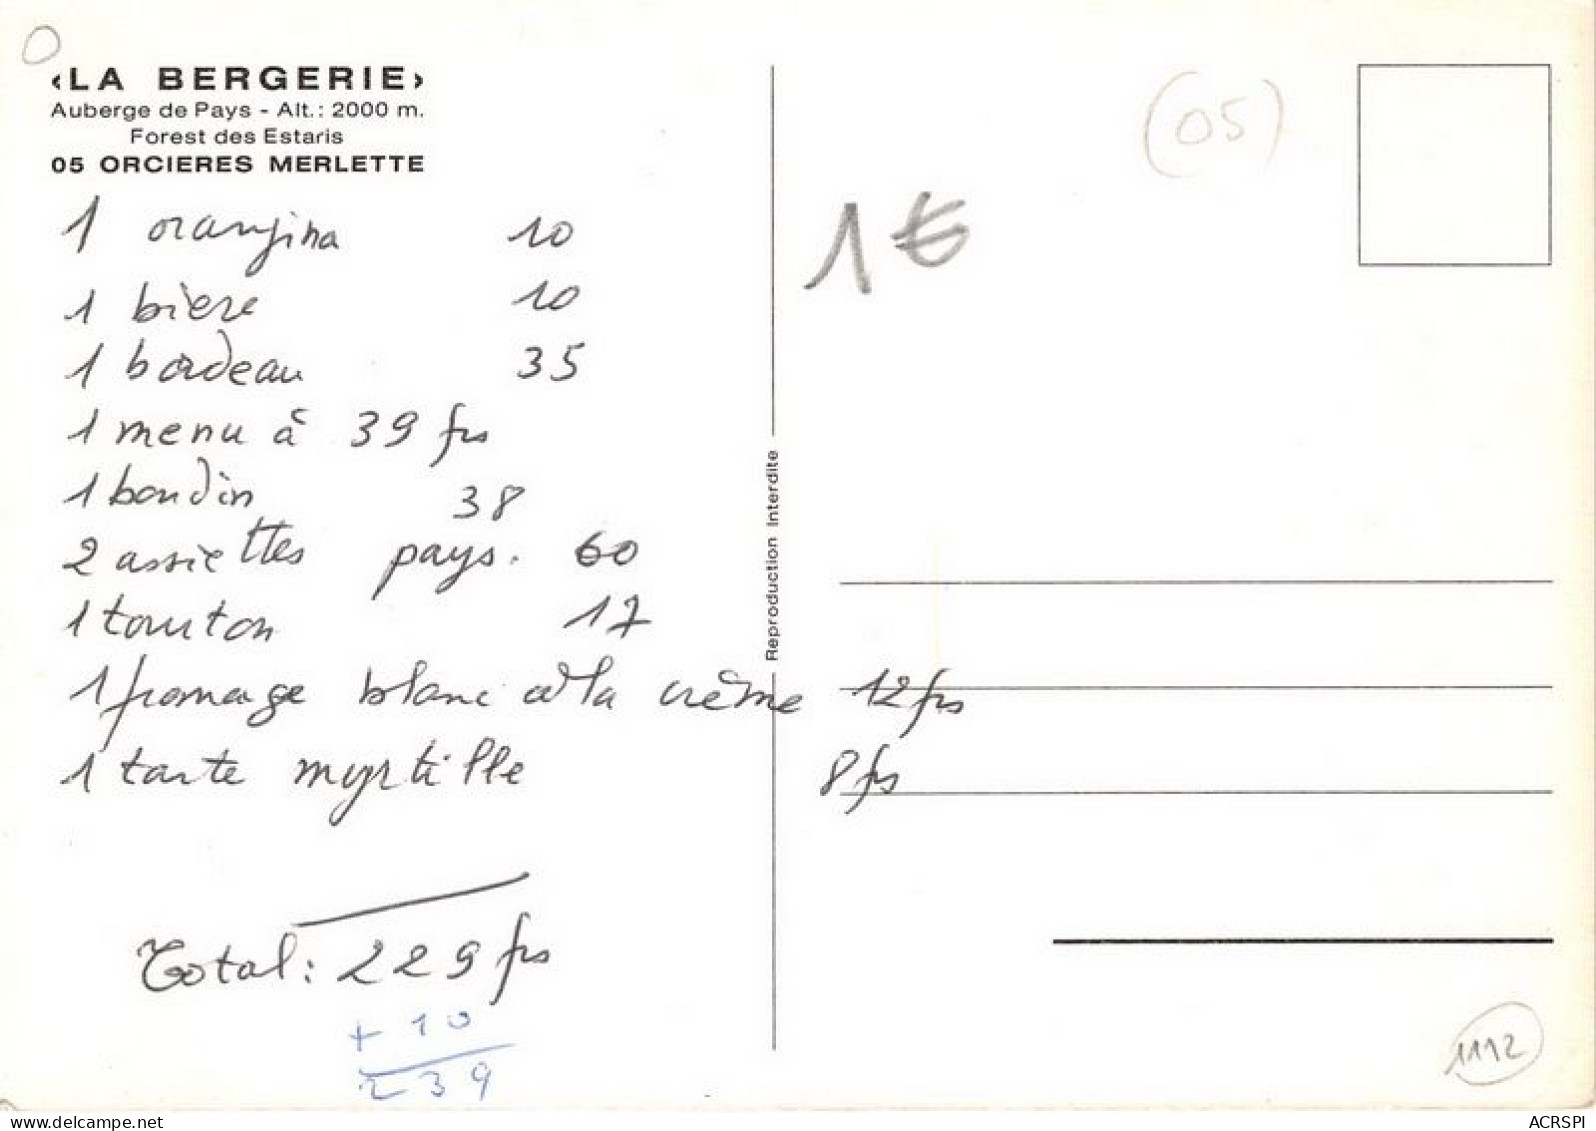 ‹LA BERGERIE›
Auberge de Pays - Alt.: 2000 m.
Forest des Estaris
05 ORCIERES MERLETTE
1 orangina 10
1 biere 10
1 bordeau 35
1 menu à 39 frs
1 boudin 38
2 assiettes pays. 60
1 tourton 17
1 fromage blanc à la crème 12 frs
1 tarte myrtille 8 frs
Total: 229 frs
+ 10
239
Reproduction Interdite
(05)
1 €
1112
www.delcampe.net
ACRSPI